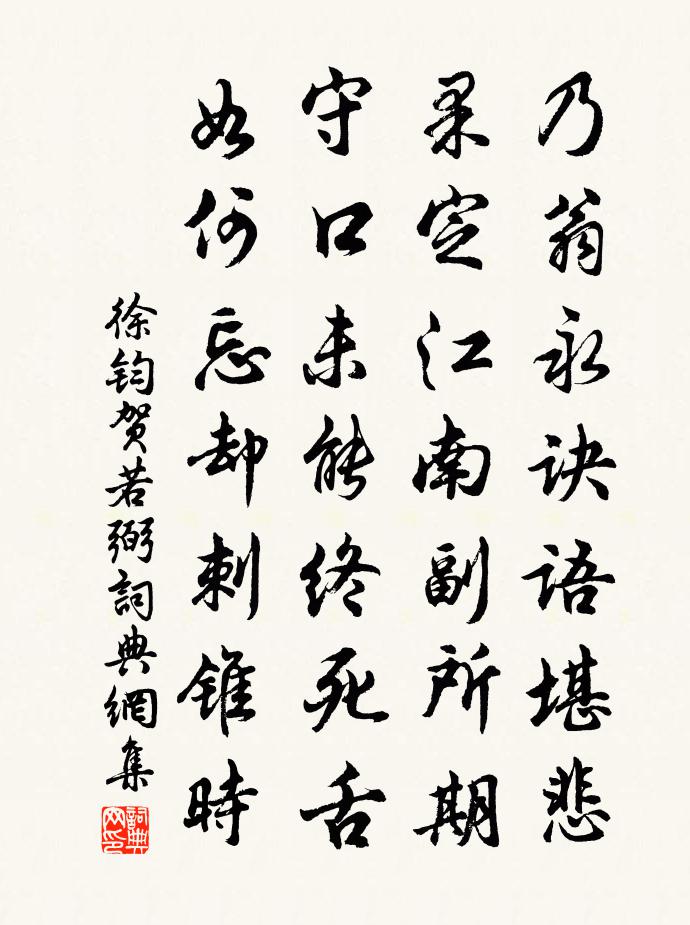 乃翁永诀语堪悲
果定江南副所期
守口未能终死舌
如何忘却刺锥时
徐钧贺若弼詞典網集
詞典网印